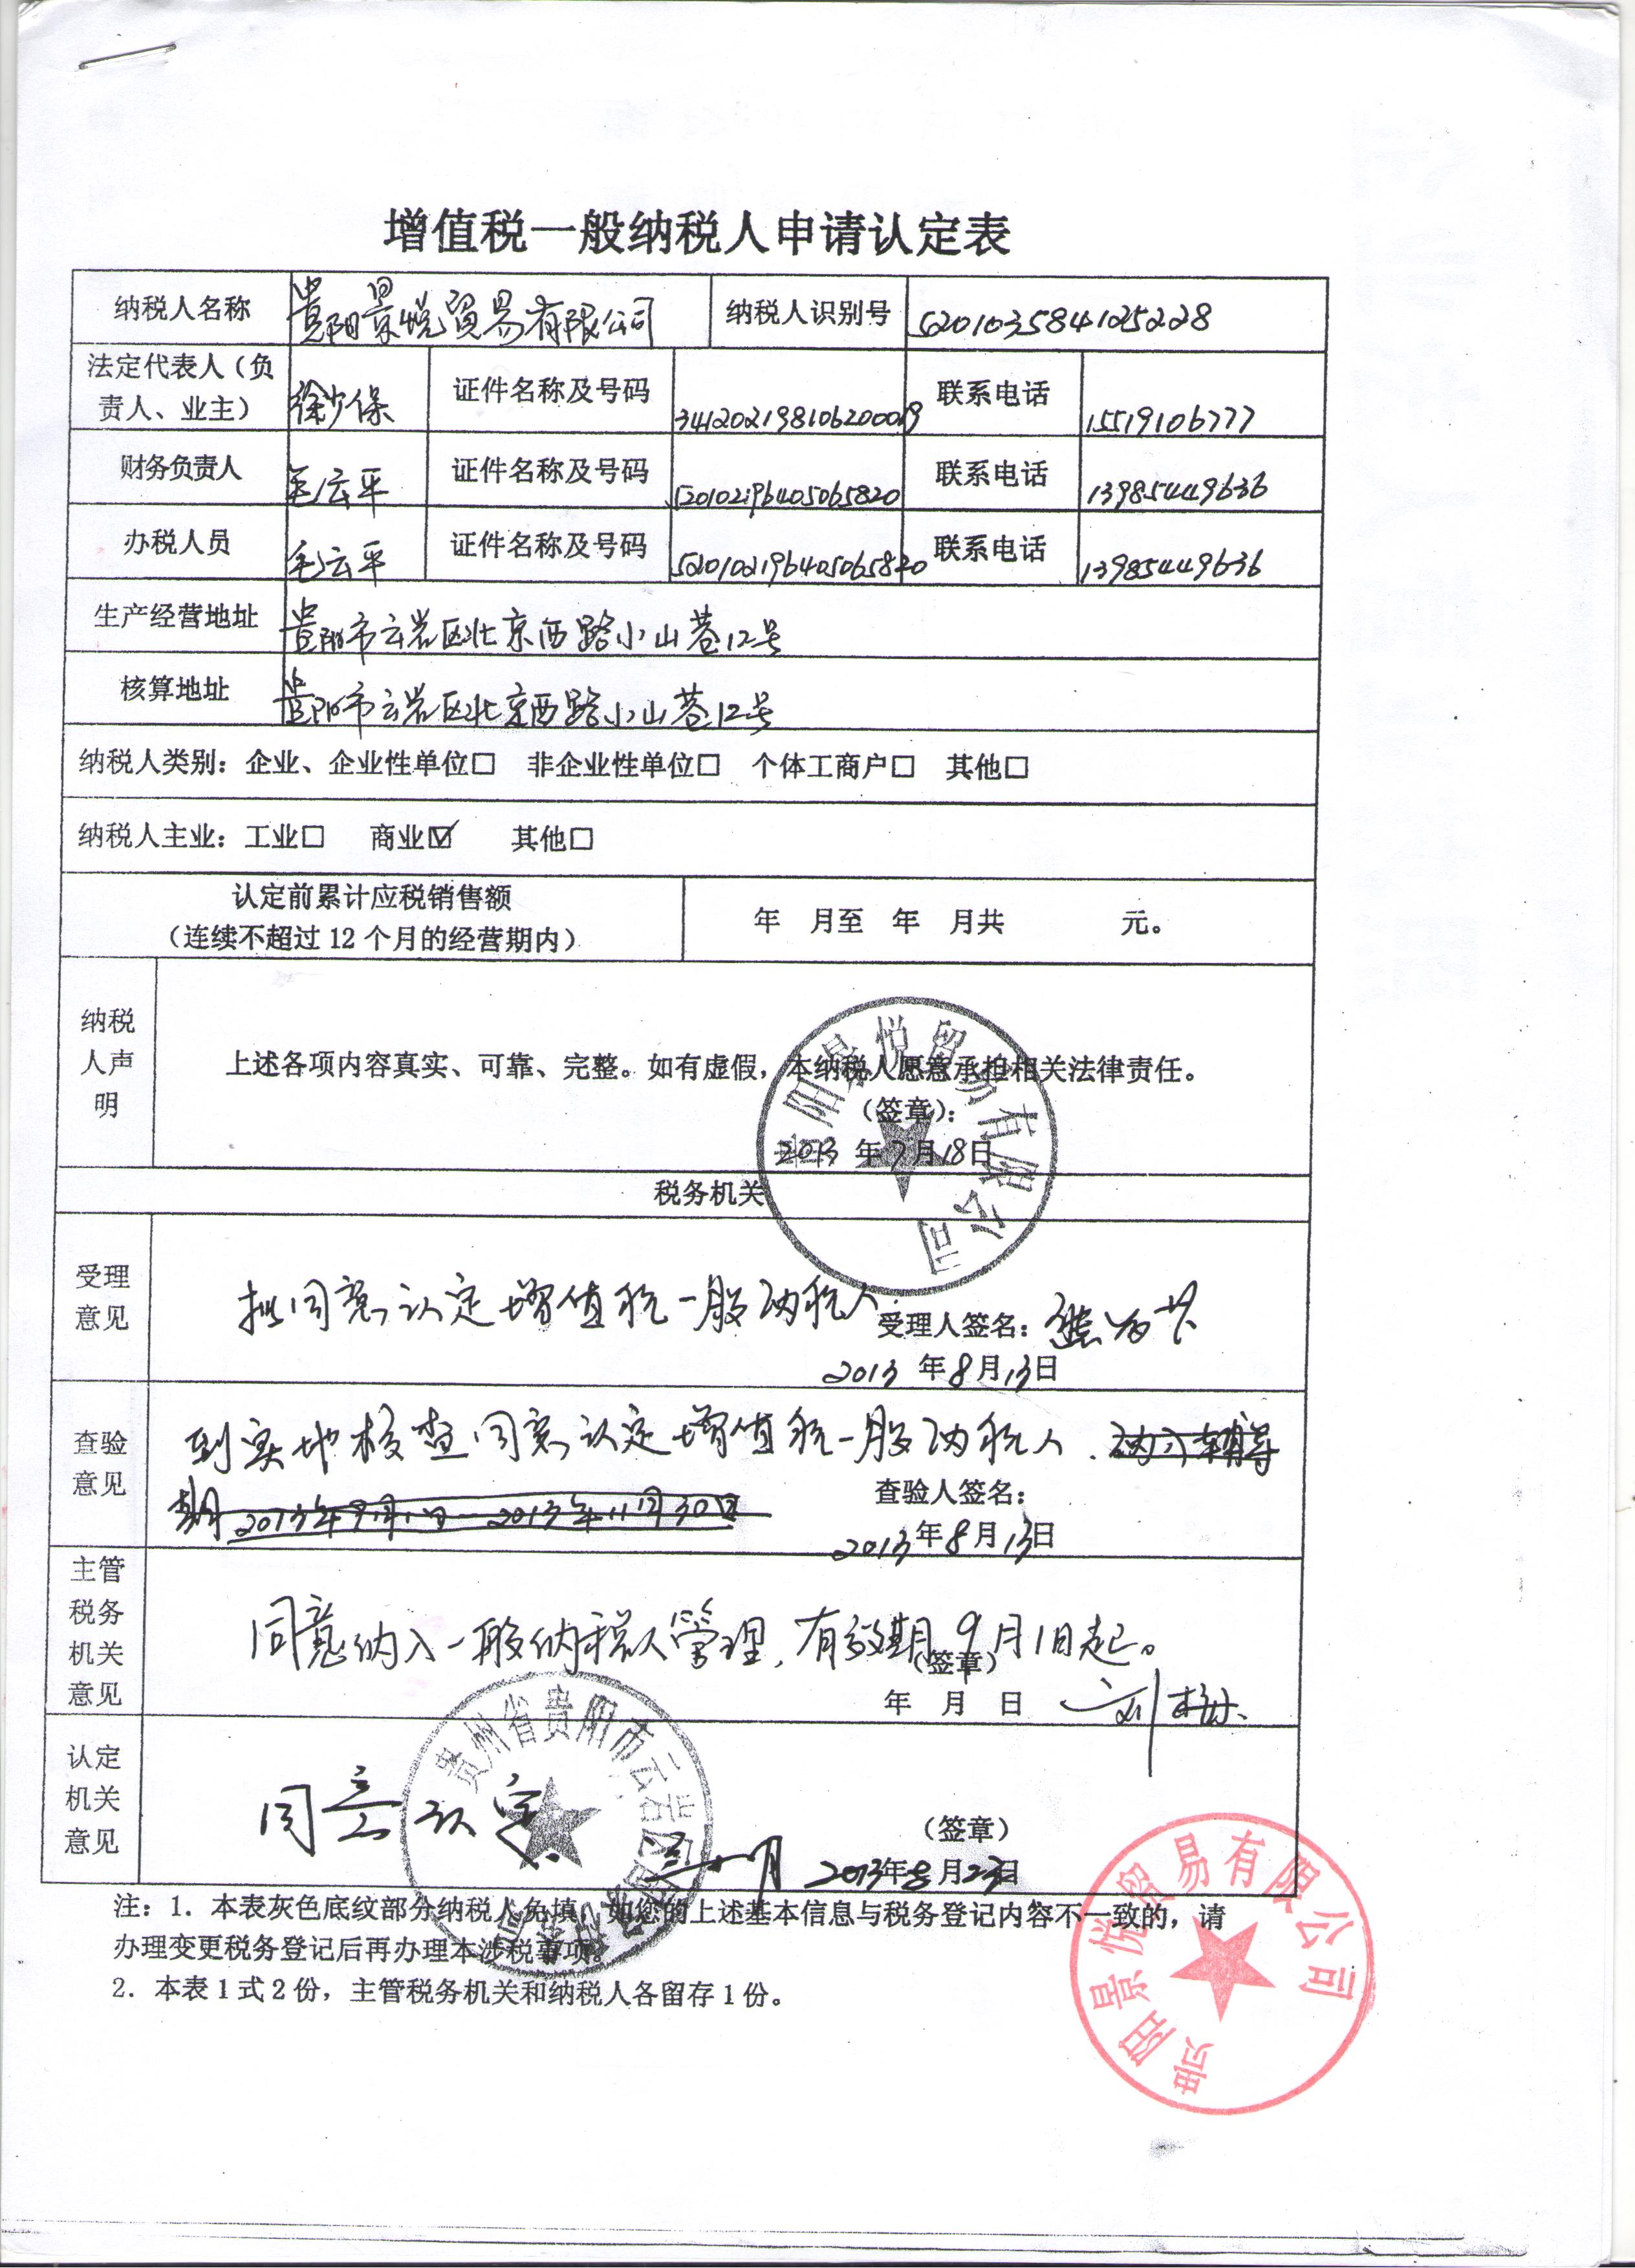 增值税一般纳税人申请认定表
纳税人名称 贵阳景悦贸易有限公司 纳税人识别号 520103584125228
法定代表人（负责人、业主） 徐少保 证件名称及号码 341202198106200019 联系电话 15519106777
财务负责人 毛云平 证件名称及号码 520102196405065820 联系电话 13985449636
办税人员 毛云平 证件名称及号码 520102196405065820 联系电话 13985449636
生产经营地址 贵阳市云岩区北京西路小山巷12号
核算地址 贵阳市云岩区北京西路小山巷12号
纳税人类别：企业、企业性单位□ 非企业性单位□ 个体工商户□ 其他□
纳税人主业：工业□ 商业☑ 其他□
认定前累计应税销售额
（连续不超过12个月的经营期内） 年 月至 年 月共 元。
纳税人声明
上述各项内容真实、可靠、完整。如有虚假，本纳税人愿意承担相关法律责任。
（签章）：
2013 年7月18日
贵阳景悦贸易有限公司
税务机关
受理意见
拟同意认定增值税一般纳税人.
受理人签名：
2013 年8月13日
查验意见
到实地核查同意认定增值税一般纳税人. 纳入辅导
期2013年9月1日—2013年11月30日
查验人签名：
2013年8月13日
主管税务机关意见
同意纳入一般纳税人管理，有效期9月1日起。
（签章）
年 月 日 刘
认定机关意见
同意认定
贵州省贵阳市云岩区
（签章）
2013年8月23日
注：1．本表灰色底纹部分纳税人免填，如您的上述基本信息与税务登记内容不一致的，请
办理变更税务登记后再办理本涉税事项。
2．本表1式2份，主管税务机关和纳税人各留存1份。
贵阳景悦贸易有限公司